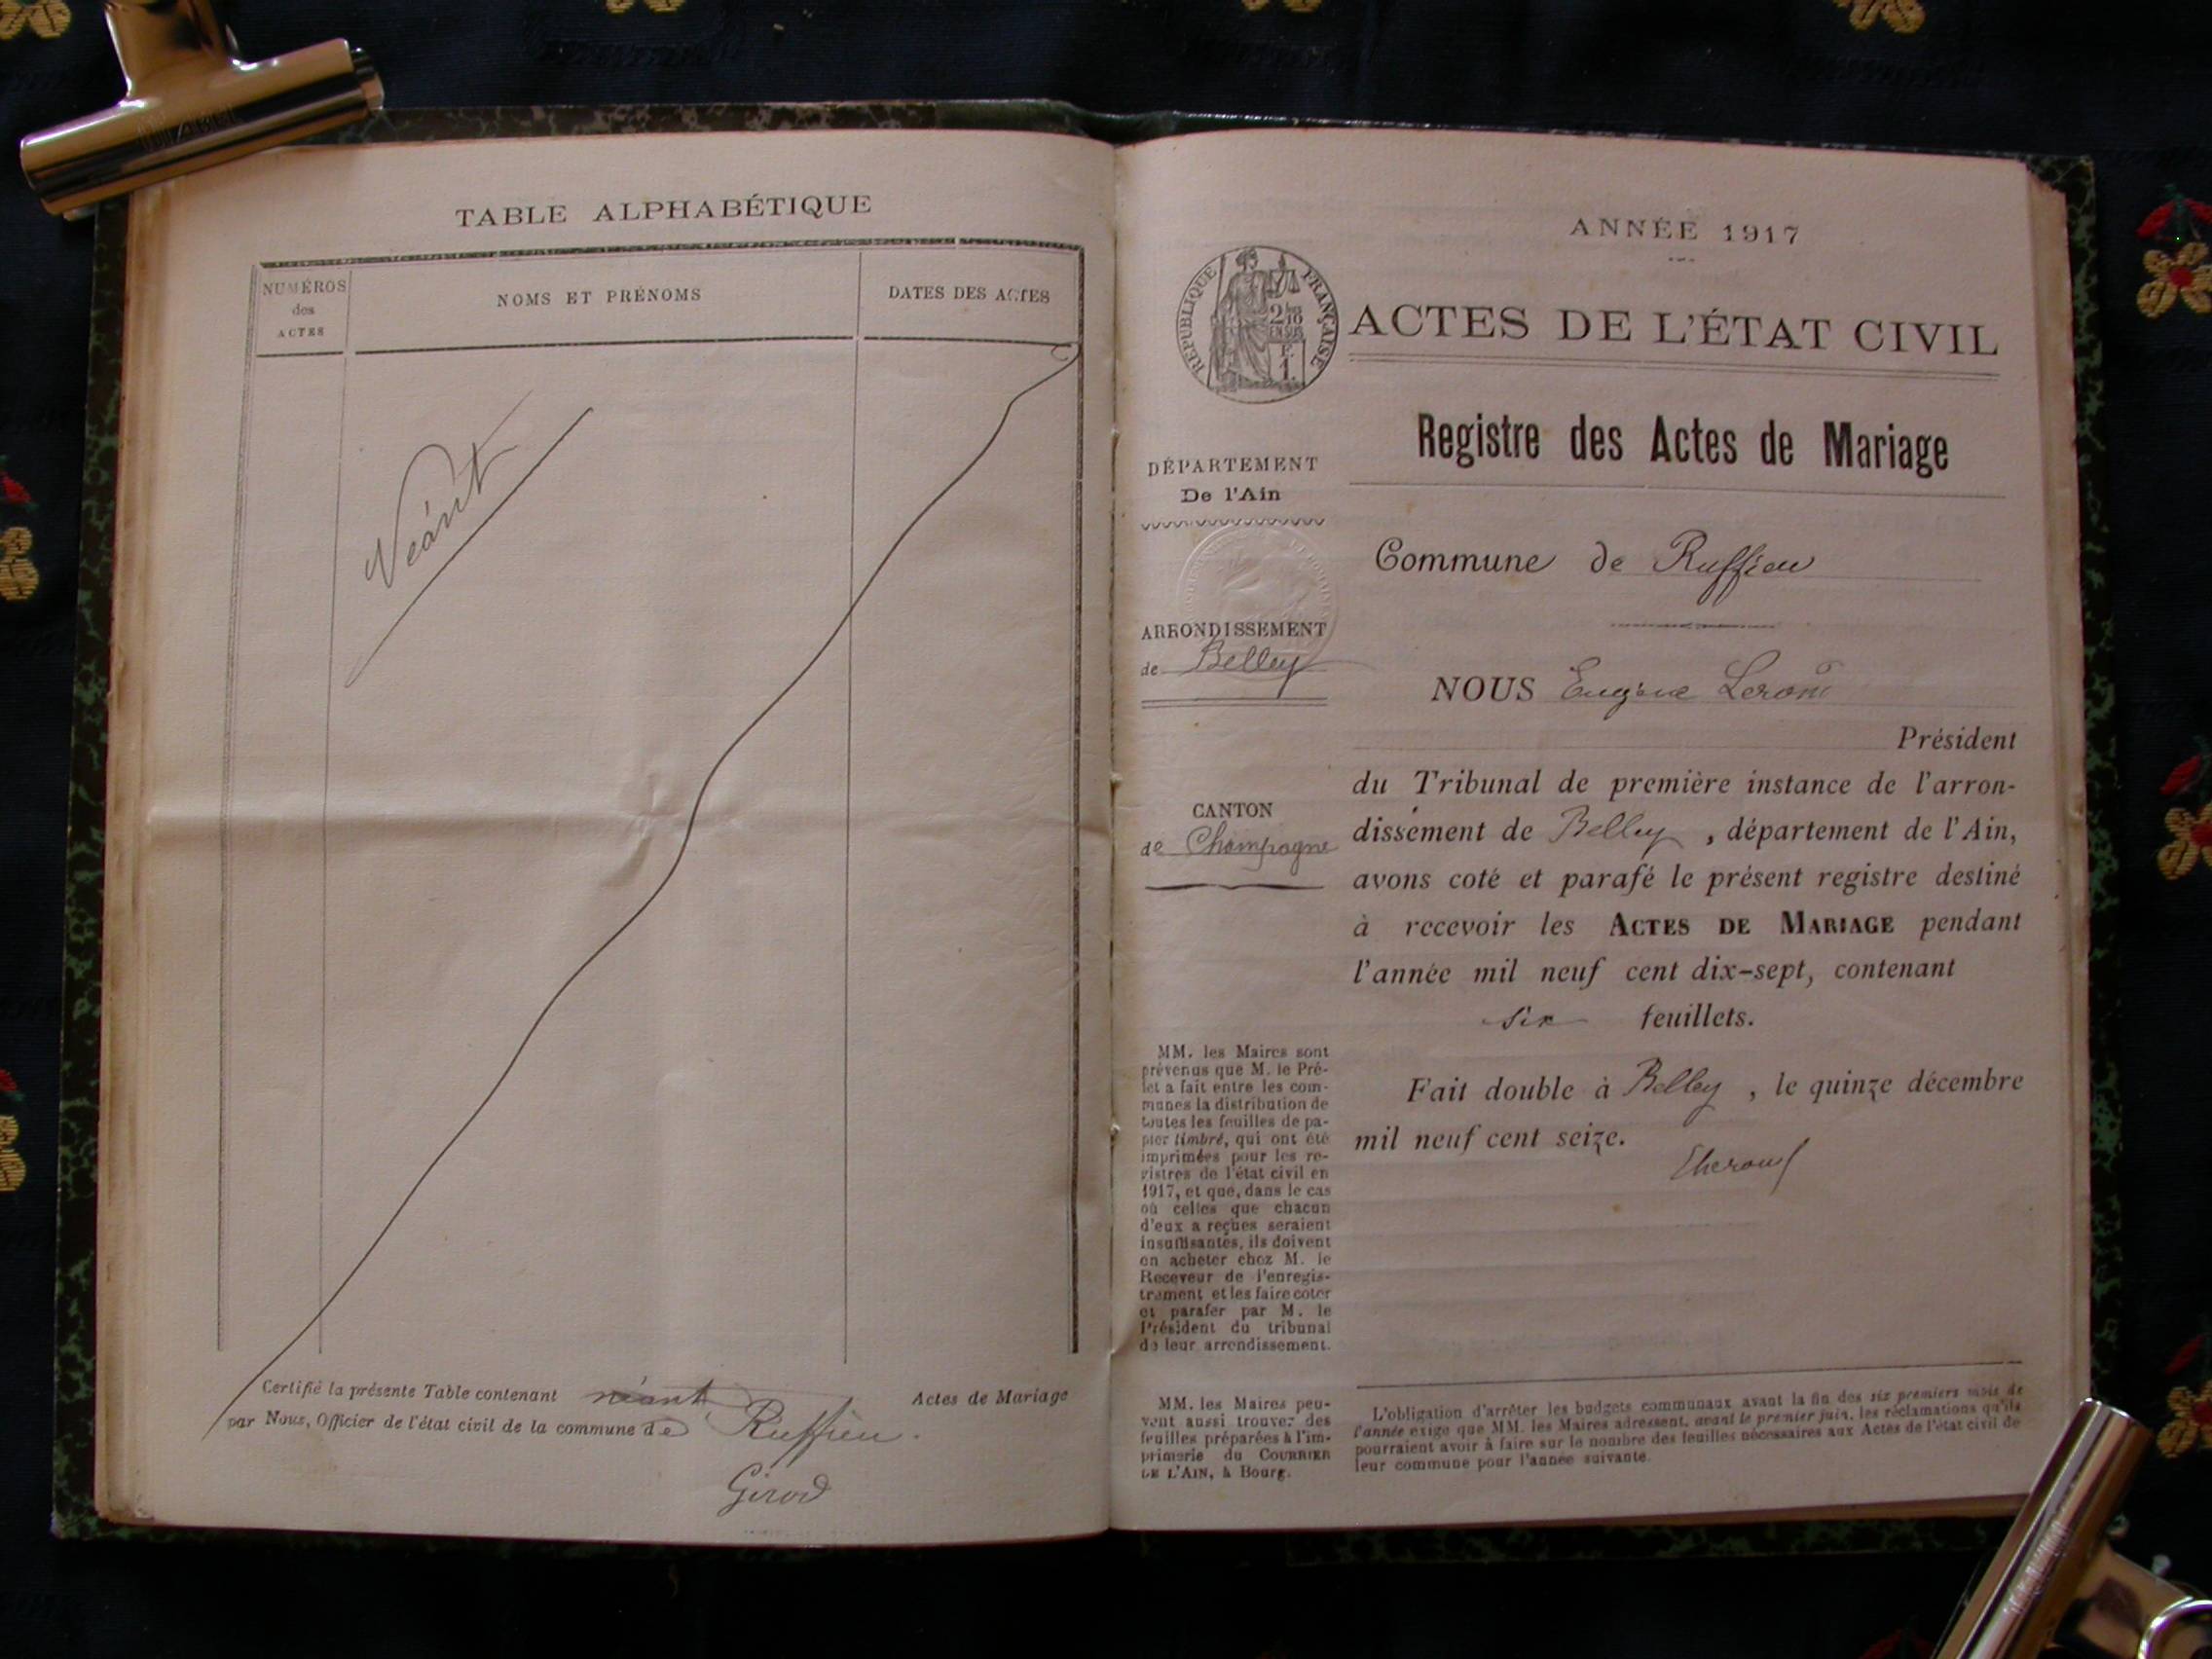 TABLE ALPHABÉTIQUE
NUMÉROS
des
ACTES
NOMS ET PRÉNOMS
DATES DES ACTES
Néant
Certifié la présente Table contenant néant Actes de Mariage
par Nous, Officier de l'état civil de la commune de Ruffieu.
Girod
ANNÉE 1917
RÉPUBLIQUE FRANÇAISE
ACTES DE L'ÉTAT CIVIL
Registre des Actes de Mariage
DÉPARTEMENT
De l'Ain
Commune de Ruffieu
ARRONDISSEMENT
de Belley
CANTON
de Champagne
NOUS Eugène
Président
du Tribunal de première instance de l'arron-
dissement de Belley, département de l'Ain,
avons coté et parafé le présent registre destiné
à recevoir les ACTES DE MARIAGE pendant
l'année mil neuf cent dix-sept, contenant
six feuillets.
Fait double à Belley, le quinze décembre
mil neuf cent seize.
MM. les Maires sont
prévenus que M. le Pré-
fet a fait entre les com-
munes la distribution de
toutes les feuilles de pa-
pier timbré, qui ont été
imprimées pour les re-
gistres de l'état civil en
1917, et que, dans le cas
où celles que chacun
d'eux a reçues seraient
insuffisantes, ils doivent
en acheter chez M. le
Receveur de l'enregis-
trement et les faire coter
et parafer par M. le
Président du tribunal
de leur arrondissement.
MM. les Maires peu-
vent aussi trouver des
feuilles préparées à l'im-
primerie du COURRIER
DE L'AIN, à Bourg.
L'obligation d'arrêter les budgets communaux avant la fin des six premiers mois de
l'année exige que MM. les Maires adressent, avant le premier juin, les réclamations qu'ils
pourraient avoir à faire sur le nombre des feuilles nécessaires aux Actes de l'état civil de
leur commune pour l'année suivante.